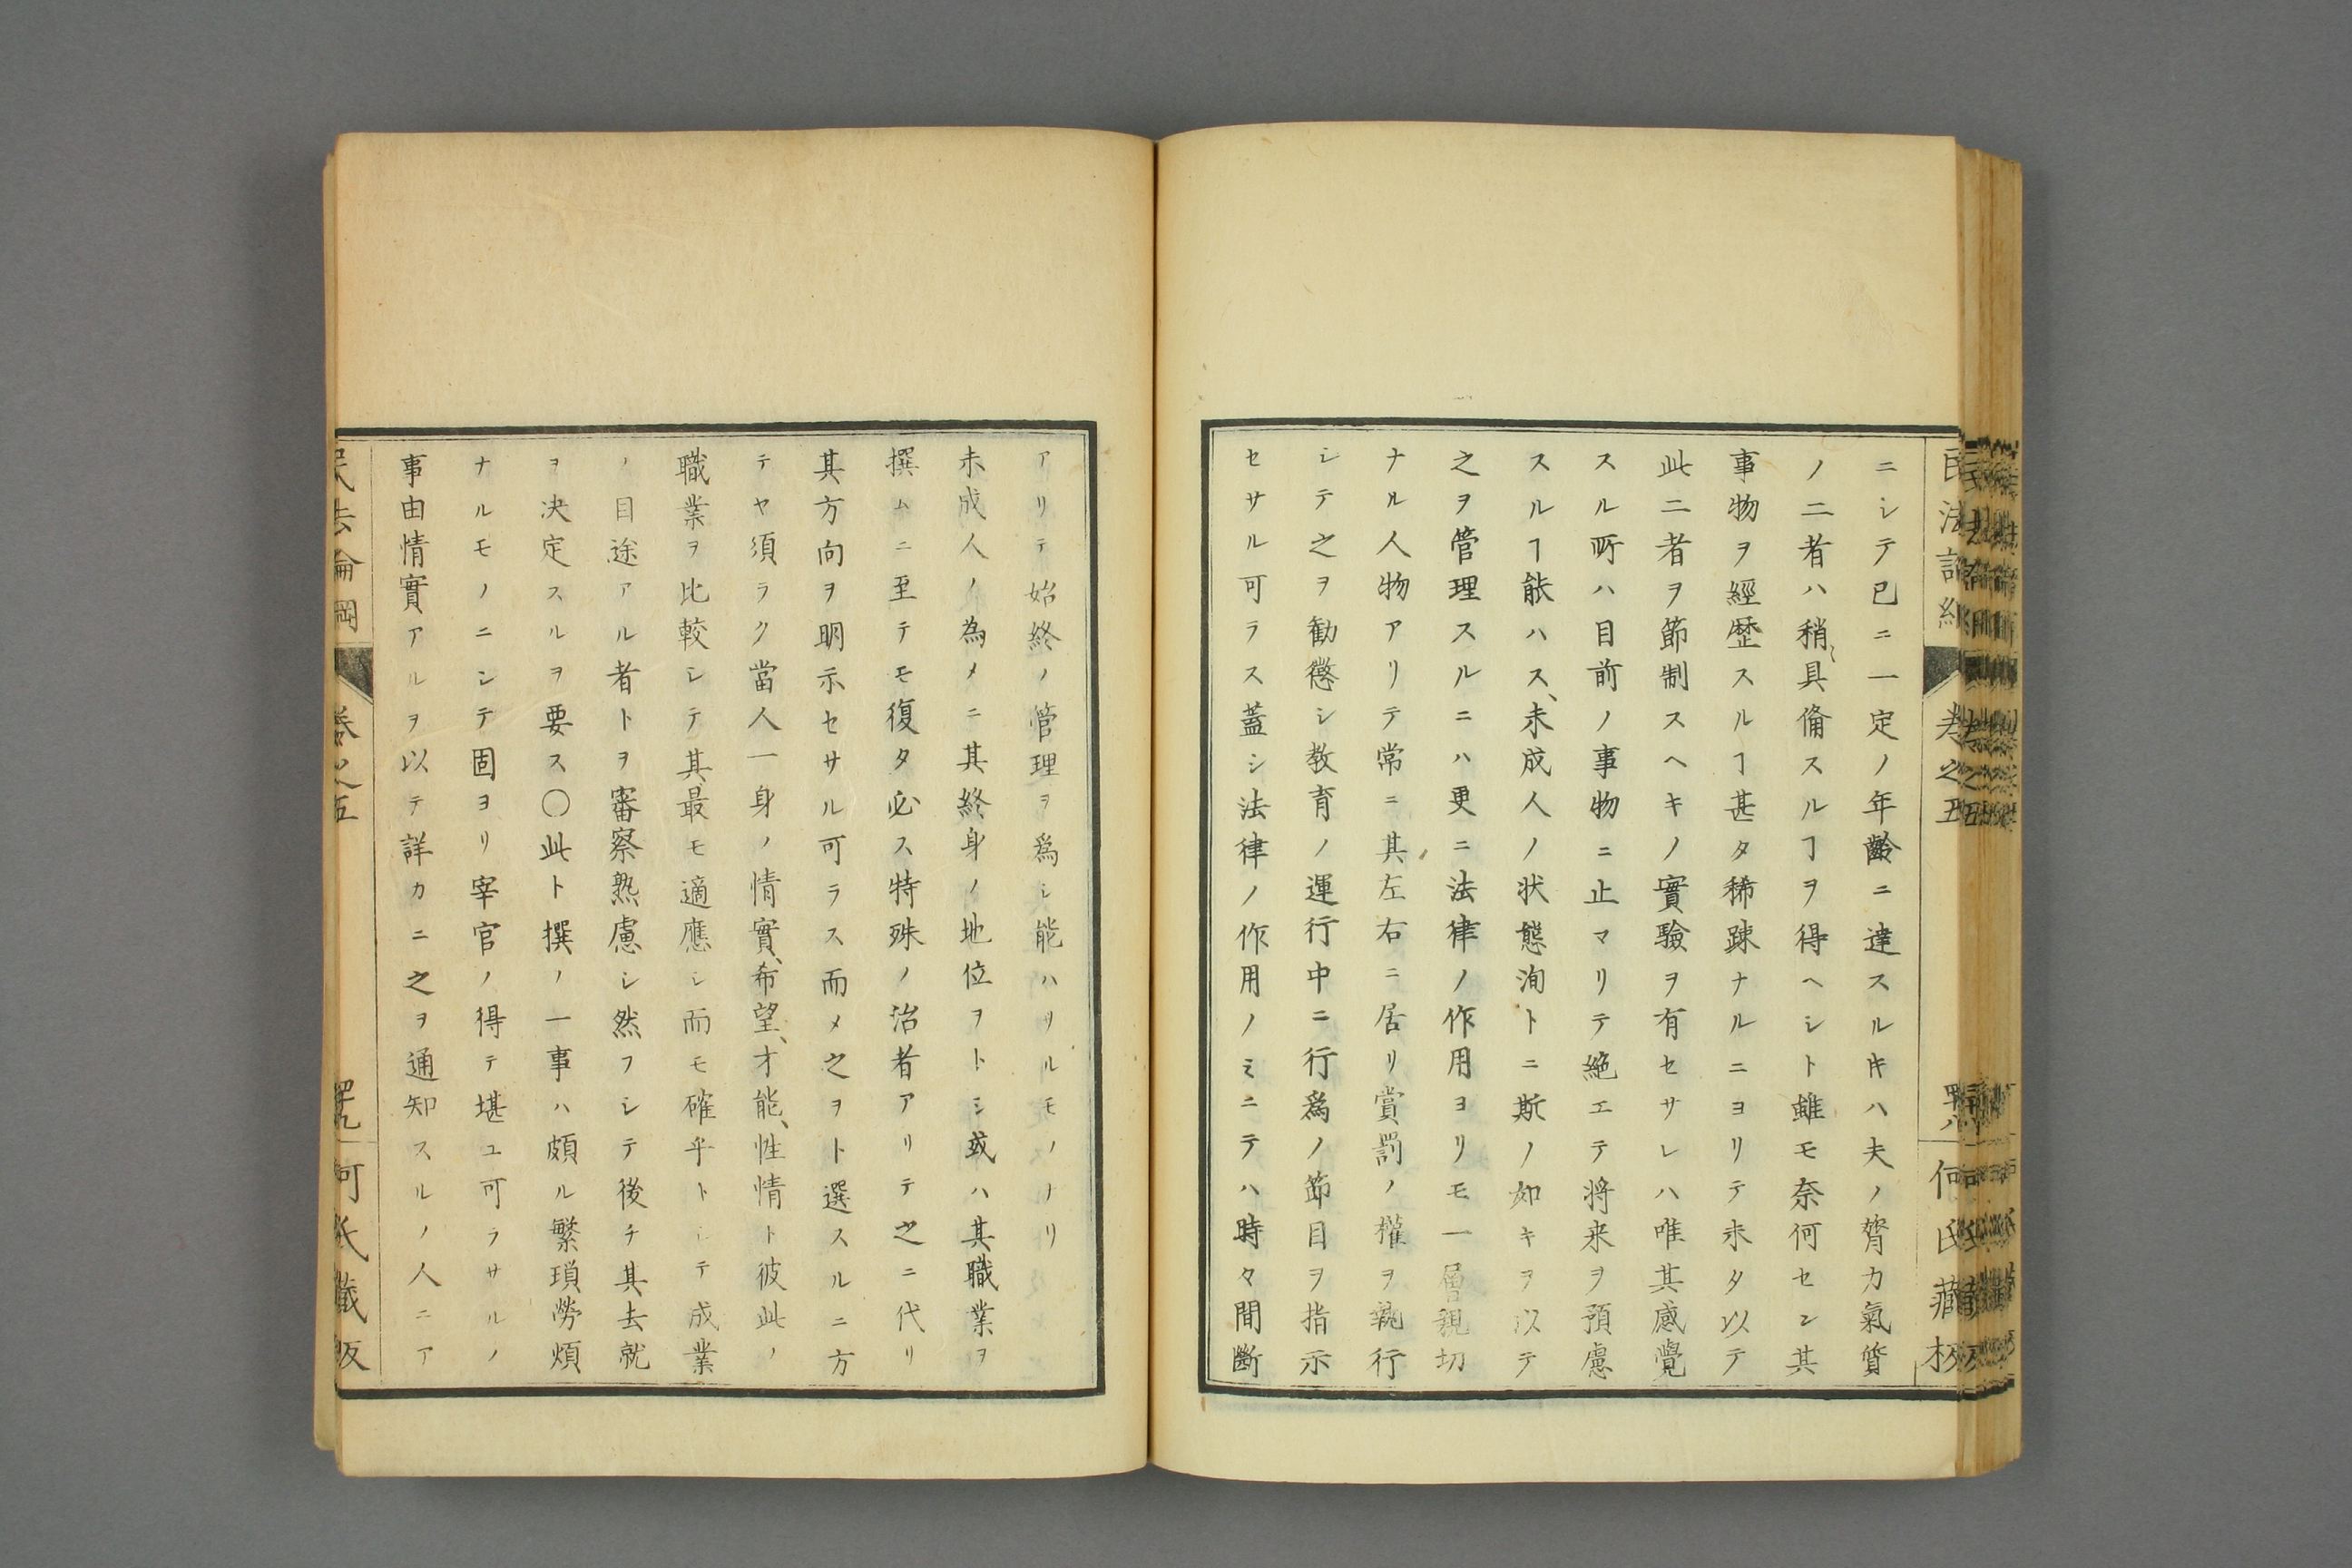 ニシテ已ニ一定ノ年齡ニ達スルキハ夫ノ膂力氣質
ノ二者ハ稍〻具備スルヿヲ得ヘシト雖モ奈何セン其
事物ヲ經歴スルヿ甚タ稀踈ナルニヨリテ未タ以テ
此二者ヲ節制スヘキノ實驗ヲ有セサレハ唯其感覺
スル所ハ目前ノ事物ニ止マリテ絶エテ将来ヲ預慮
スルヿ能ハス、未成人ノ状態洵トニ斯ノ如キヲ以テ
之ヲ管理スルニハ更ニ法律ノ作用ヨリモ一層親切
ナル人物アリテ常ニ其左右ニ居リ賞罰ノ權ヲ執行
シテ之ヲ勧懲シ教育ノ運行中ニ行為ノ節目ヲ指示
セサル可ラス蓋シ法律ノ作用ノミニテハ時々間斷
アリテ始終ノ管理ヲ爲シ能ハサルモノナリ
未成人ノ為メニ其終身ノ地位ヲトシ或ハ其職業ヲ
撰ムニ至テモ復タ必ス特殊ノ治者アリテ之ニ代リ
其方向ヲ明示セサル可ラス而メ之ヲト選スルニ方
テヤ須ラク當人一身ノ情實、希望、才能、性情ト彼此ノ
職業ヲ比較シテ其最モ適應シ而モ確乎トシテ成業
ノ目途アル者トヲ審察熟慮シ然フシテ後チ其去就
ヲ決定スルヲ要ス〇此ト撰ノ一事ハ頗ル繁瑣勞煩
ナルモノニシテ固ヨリ宰官ノ得テ堪ユ可ラサルノ
事由情實アルヲ以テ詳カニ之ヲ通知スルノ人ニア
民法論綱 卷之五 四十九 何氏藏版